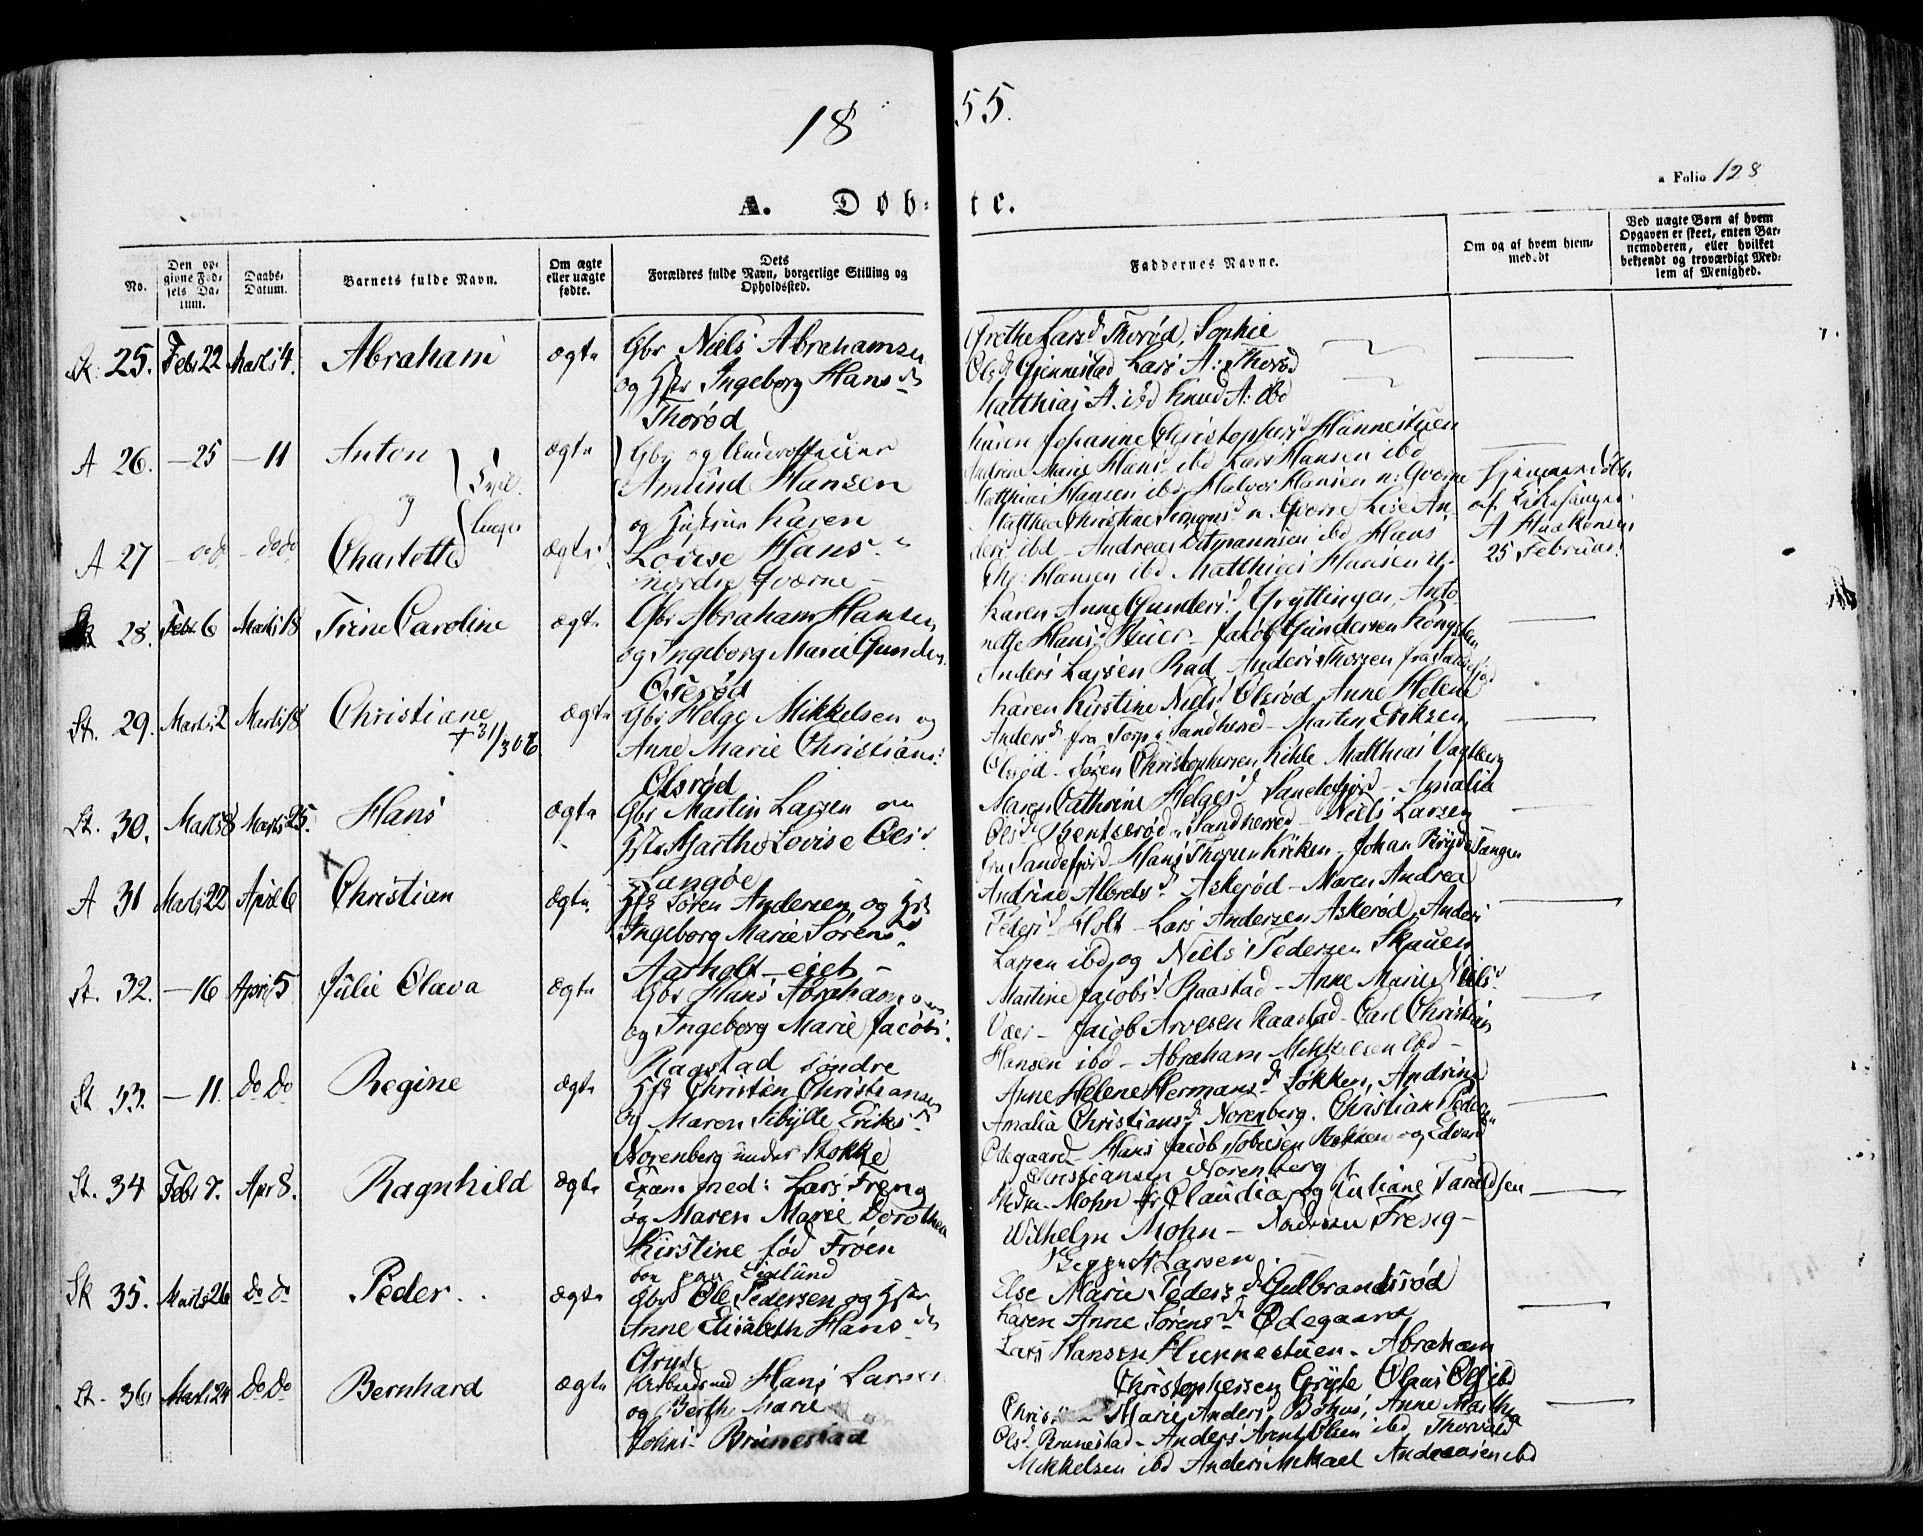 18 55.
a Folio 128
A. Døb- te.
No.
Den op-
givne Fød-
sels Da-
tum.
Daabs-
Datum.
Barnets fulde Navn.
Om ægte
eller uægte
fødte.
Dets
Forældres fulde Navn, borgerlige Stilling og
Opholdssted.
Faddernes Navne.
Om og af hvem hjem-
medøbt
Ved uægte Børn af hvem
Opgaven er skeet, enten Bar-
nemoderen, eller hvilket
bekjendt og troværdigt Med-
lem af Menighed.
Sk. 25. Febr 22 Marts 4. Abraham ægte
Gbr Niels Abrahamsen
og Hstr Ingeborg Hansd
Thorød
Grethe Larsd Thorød, Sophie
Olsd Gjennestad Lars A: Thorød
Matthias A. ibd Knud A: ibd
A 26. — 25 — 11 Anton ægte
og
Tvil
linger
A 27 — do do — do do Charlotte ægte
Gbr og Underofficier
Amund Hansen
og Hustrue Karen
Lovise Hansd
nordre Qværne —
Karen Johanne Christophersd Hunnestuen
Andrine Marie Hansd ibd Lars Hansen ibd
Matthias Hansen ibd Halvor Hansen n: Qværne
Matthea Christine Simonsd n. Qværne Lise An
dersd ibd — Andreas Ditmannsen ibd Hans
Chr: Hansen ibd Matthias Hansen
Hjemmedøbt
af Kirkesanger
A Haakonsen
25 Februar
Sk 28. Febr 6 Marts 18 Trine Caroline ægte
Gbr Abraham Hansen
og Ingeborg Marie Gunders
Oserød
Karen Anne Gundersd Gryttingen, Anto
nette Hansd Buer — Jacob Gundersen
Anders Larsen Rad Anders Thorsen fra Sandefjord
St. 29. Marts 2 Marts 18 Christiane ægte
+ 31/3 06
Gbr Helge Mikkelsen og
Anne Marie Christiansd
Olsrød
Karen Kirstine Nielsd Olsrød, Anne Helene
Andersd fra Torp i Sandherred — Marten Eriksen
Olsrød — Søren Christophersen Kihle Matthias
St. 30. Marts 8 Marts 25. Hans ægte
Gbr Martin Larsen og
Hstr Marthe Lovise Olsd
Langøe
Maren Cathrine Helgesd Sandefjord — Amalia
Olsd Bentserød i Sandherred — Niels Larsen
fra Sandefjord — Hans Thorsen Kriken — Johan Bryde Tangen
A 31 Marts 22 April 6 Christian ægte
Hfd Søren Andersen og Hst
Ingeborg Marie Sørensd
Aarholt — eiet —
Andrine Albretsd Askerød — Maren Andrea
Pedersd Holt — Lars Andersen Askerød, Anders
Larsen ibd og Niels Pedersen Skauen
St. 32. — 16 April 5 Julie Olava ægte
Gbr Hans Abrahamsen
og Ingeborg Marie Jacobsd
Raastad søndre
Martine Jacobsd Raastad — Anne Marie Nielsd
Vær — Jacob Arvesen Raastad — Carl Christian
Hansen ibd — Abraham Mikkelsen ibd —
St 33. — 11. Do Do Regine ægte
Hfd Christen Christiansen
og Maren Sibylle Eriksd
Norenberg under Stokke
Anne Helene Hermansd Løkken, Andrine
Amalia Christiansd Norenberg. Christian Pedersen
Ødegaard — Hans Jacob Tobiesen Bakken og Edvard
Christiansen Norenberg
St. 34 Febr 7. Apr 8. Ragnhild ægte
Exam: med: Lars Freng
og Maren Marie Dorothea
Kirstine fød Frøen
Mohn fr Claudia og Juliane Taraldsen
Wilhelm Mohn — Andreas Freng —
Larsen
Sk 35. Marts 26 Do Do Peder ægte
Gbr Ole Pedersen og Hstr
Anne Elisabeth Hansd
Gryte
Else Marie Pedersd Gulbrandsrød
Karen Anne Sørensd Ødegaard
Lars Hansen Hunnestuen — Abraham
Christophersen Gryte Olaus Ols ibd
St. 36 Marts 24 Do Do Bernhard ægte
Arbeidsmd Hans Larsen
og Berthe Marie
Johnsd Brunestad
Marie Andersd Bøhus, Anne Marthe
Olsd Brunestad — Anders Arent Olsen ibd Thorvald
Mikkelsen ibd Anders Mikael Andreasen ibd